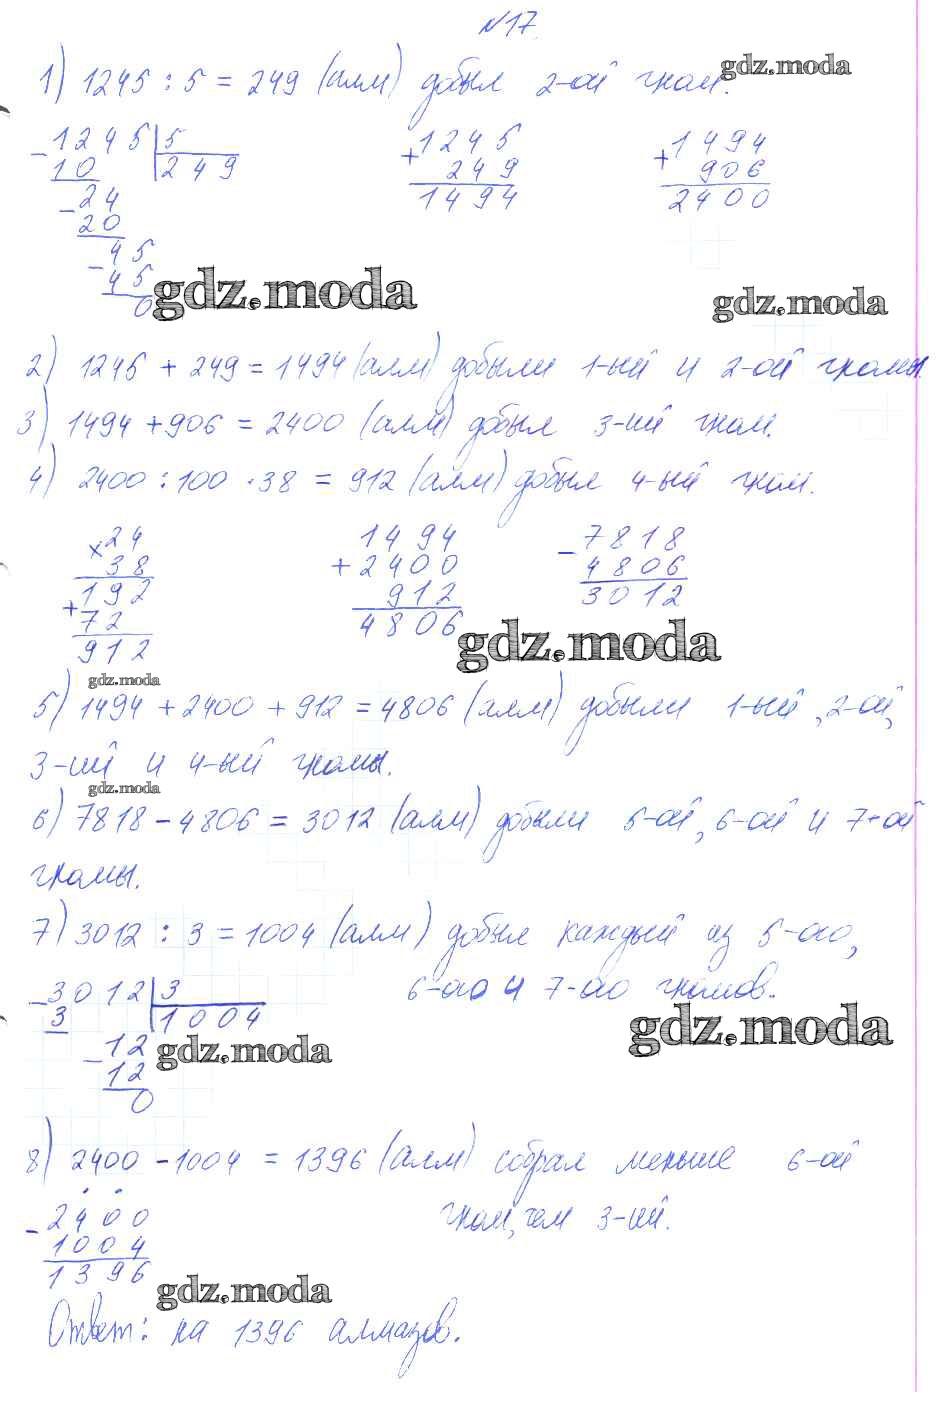 №17.
1) 1245 : 5 = 249 (алм) добыл 2-ой гном.
gdz.moda
- 1245 | 5
10 249
- 24
20
- 45
45
0
+ 1245
249
1494
+ 1494
906
2400
gdz.moda
gdz.moda
2) 1245 + 249 = 1494 (алм) добыли 1-ый и 2-ой гномы.
3) 1494 + 906 = 2400 (алм) добыл 3-ий гном.
4) 2400 : 100 · 38 = 912 (алм) добыл 4-ый гном.
× 24
38
+ 192
72
912
+ 1494
2400
912
4806
- 7818
4806
3012
gdz.moda
gdz.moda
5) 1494 + 2400 + 912 = 4806 (алм) добыли 1-ый, 2-ой,
3-ий и 4-ый гномы.
gdz.moda
6) 7818 - 4806 = 3012 (алм) добыли 5-ой, 6-ой и 7-ой
гномы.
7) 3012 : 3 = 1004 (алм) добыл каждый из 5-ого,
6-ого и 7-ого гномов.
- 3012 | 3
3 1004
- 12
12
0
gdz.moda
gdz.moda
8) 2400 - 1004 = 1396 (алм) собрал меньше 6-ой
гном, чем 3-ий.
- 2400
1004
1396
gdz.moda
Ответ: на 1396 алмазов.